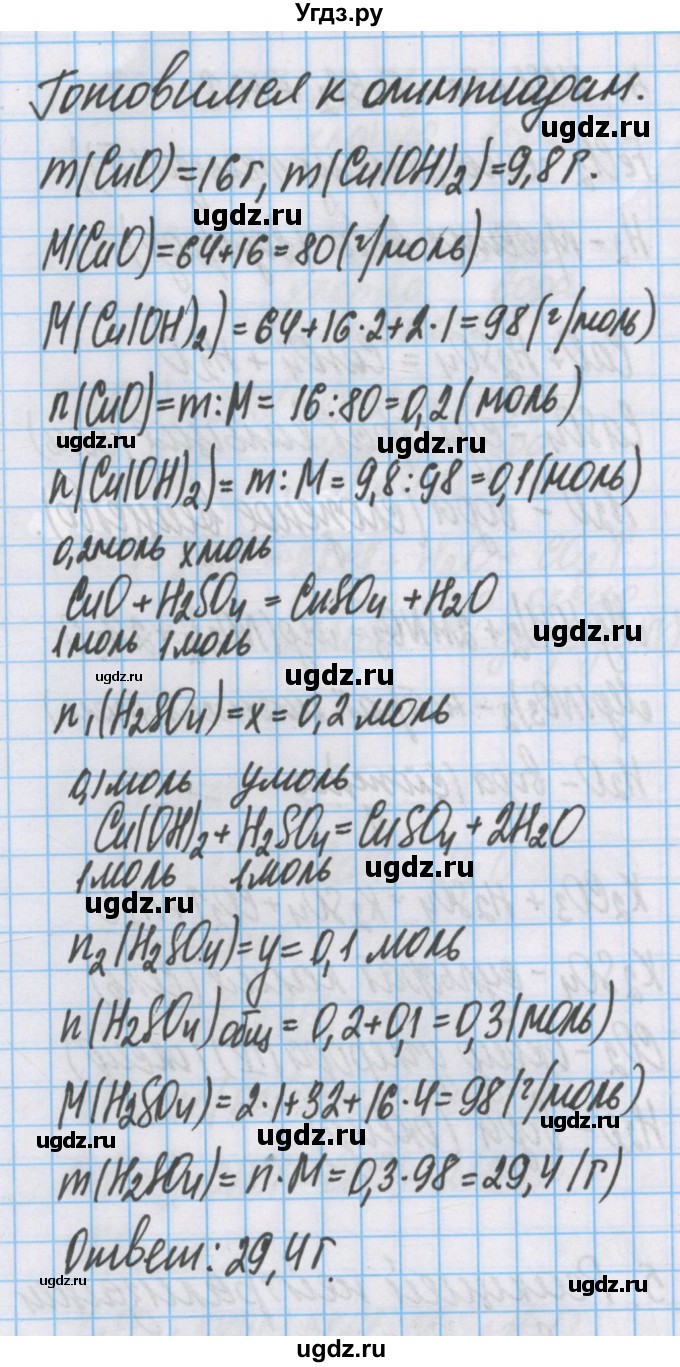 Угдз.ру
Готовимся к олимпиадам.
ugdz.ru
m(CuO)=16г, m(Cu(OH)2)=9,8г.
ugdz.ru
M(CuO)=64+16=80(г/моль)
M(Cu(OH)2)=64+16·2+2·1=98(г/моль)
n(CuO)=m:M= 16:80=0,2(моль)
ugdz.ru ugdz.ru
n(Cu(OH)2)= m:M= 9,8:98=0,1(моль)
0,2моль x моль
CuO+H2SO4 = CuSO4 +H2O
ugdz.ru
1моль 1моль
ugdz.ru ugdz.ru
n1(H2SO4)=x=0,2 моль
0,1моль y моль
Cu(OH)2+H2SO4=CuSO4+2H2O
1моль 1моль ugdz.ru
ugdz.ru
n2(H2SO4)=y=0,1 моль
n(H2SO4)общ=0,2+0,1=0,3(моль)
M(H2SO4)=2·1+32+16·4=98(г/моль)
ugdz.ru ugdz.ru ugdz.ru
m(H2SO4)=n·M=0,3·98=29,4(г)
Ответ: 29,4г.
ugdz.ru ugdz.ru
ugdz.ru